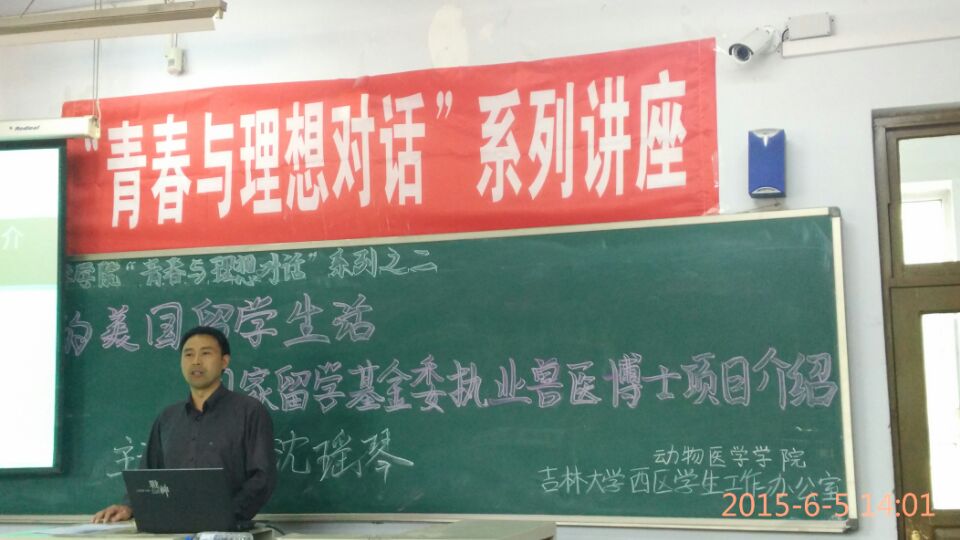 Redleaf
“青春与理想对话”系列讲座
介
学院“青春与理想对话”系列之二
的美国留学生活
国家留学基金委执业兽医博士项目介绍
主 沈瑶琴
动物医学学院
吉林大学西区学生工作办公室
2015-6-5 14:01